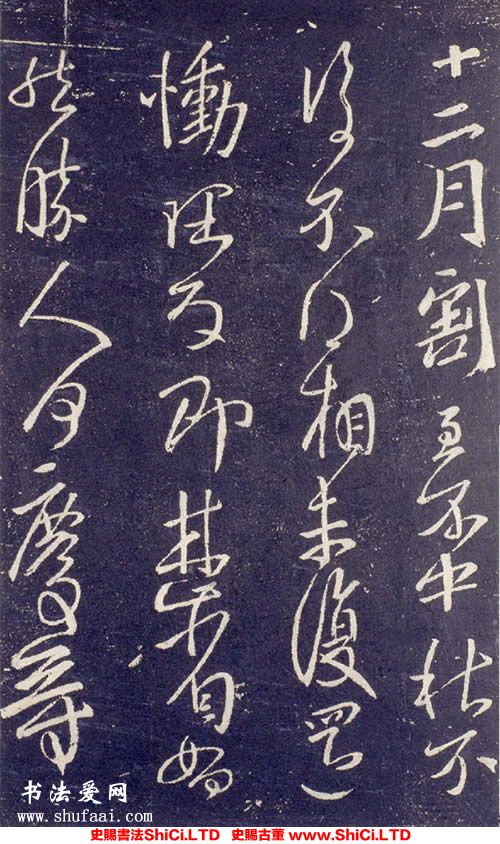 十二月割至不中秋不
復不得相未復還
慟理為即甚省如
然勝人何慶等
书法爱网
www.shufaai.com
史賜書法ShiCi.LTD 史賜古董 www.ShiCi.LTD